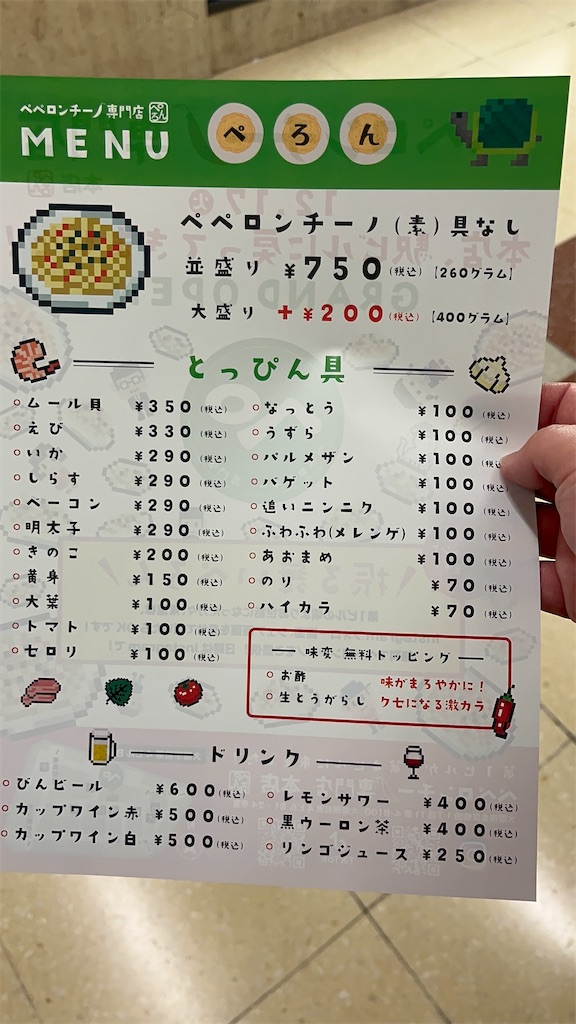 ペペロンチーノ専門店 ぺろん
MENU
ぺろん
ペペロンチーノ(素)具なし
並盛り ¥750(税込)【260グラム】
大盛り +¥200(税込)【400グラム】
とっぴん具
ムール貝 ¥350(税込)
えび ¥330(税込)
いか ¥290(税込)
しらす ¥290(税込)
ベーコン ¥290(税込)
明太子 ¥290(税込)
きのこ ¥200(税込)
黄身 ¥150(税込)
大葉 ¥100(税込)
トマト ¥100(税込)
セロリ ¥100(税込)
なっとう ¥100(税込)
うずら ¥100(税込)
パルメザン ¥100(税込)
バゲット ¥100(税込)
追いニンニク ¥100(税込)
ふわふわ(メレンゲ) ¥100(税込)
あおまめ ¥100(税込)
のり ¥70(税込)
ハイカラ ¥70(税込)
味変 無料トッピング
お酢 味がまろやかに!
生とうがらし クセになる激カラ
ドリンク
びんビール ¥600(税込)
カップワイン赤 ¥500(税込)
カップワイン白 ¥500(税込)
レモンサワー ¥400(税込)
黒ウーロン茶 ¥400(税込)
リンゴジュース ¥250(税込)